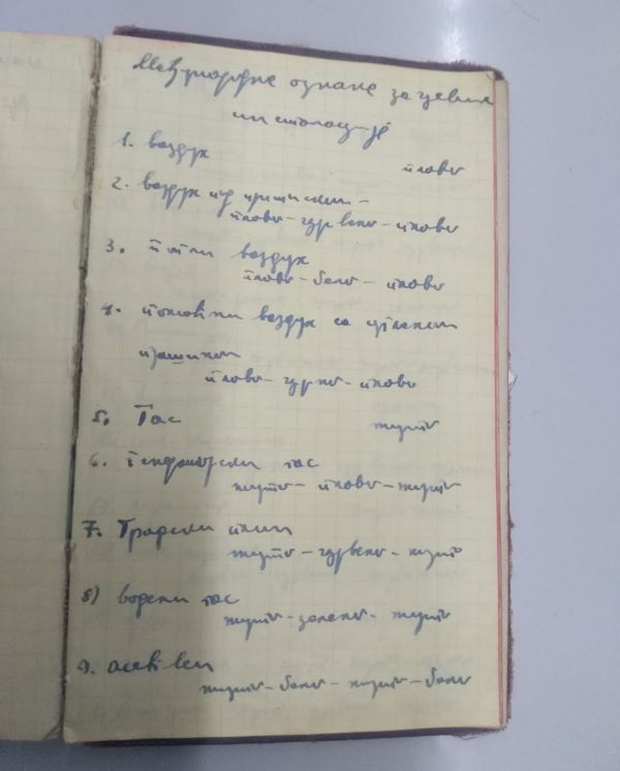 Међународне ознаке за цевне
инсталације
1. Ваздух
плаво
2. Ваздух под притиском -
плаво - црвено - плаво
3. топли ваздух
плаво - бело - плаво
4. ваздух са
плаво - црно - плаво
5. Гас
жуто
6. Генераторски гас
жуто - плаво - жуто
7. Градски плин
жуто - црвено - жуто
8) водени гас
жуто - зелено - жуто
9. ацетилен
жуто - бело - жуто - бело